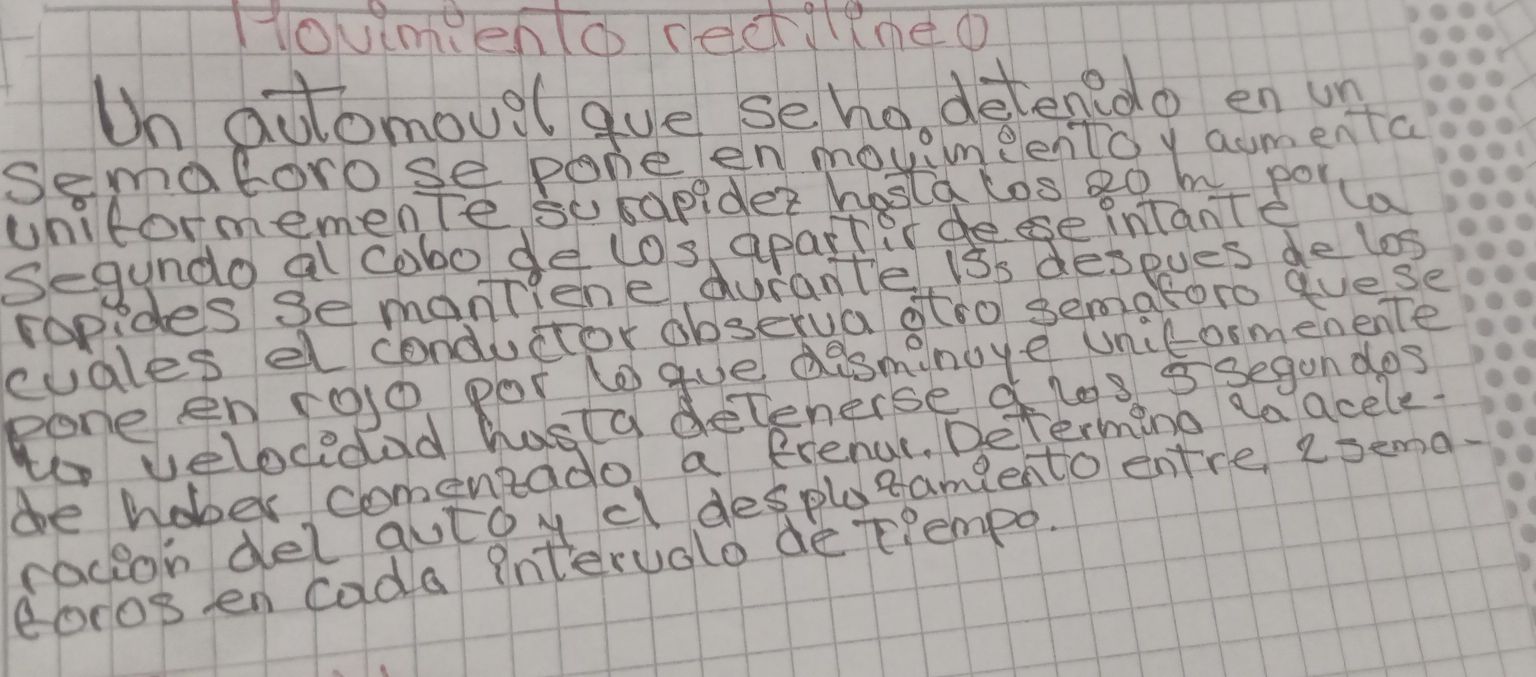 Movimiento rectilineo
Un automovil que se ha detenido en un
semaforo se pone en movimiento y aumenta
uniformemente su rapidez hasta los 20 m por
segundo al cabo de los, apartir de ese intante la
rapides se mantiene durante 15s despues de los
cuales el conductor observa otro semaforo que se
pone en rojo por lo que disminuye uniformenente
su velocidad hasta detenerse a los 5 segundos
de haber comenzado a frenar. Determina la acele-
racion del auto y el desplazamiento entre 2 sema-
foros en cada intervalo de tiempo.